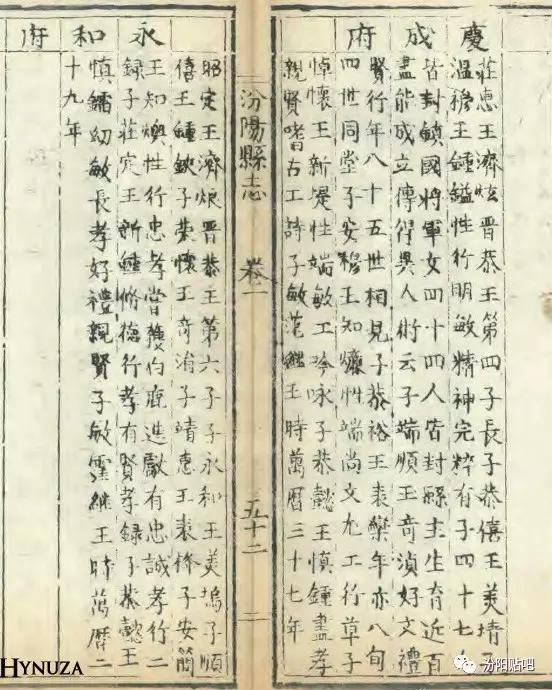 慶成府
莊惠王濟炫晉恭王第四子長子恭僖王美堉子
溫穆王鍾鎰性行明敏精神完粹有子四十七
皆封鎮國將軍女四十四人皆封縣主生育近百
盡能成立傳得異人術云子端順王奇湞好文禮
賢行年八十五世相見子恭裕王表欒年亦八旬
四世同堂子安穆王知性端尚文尤工行草子
悼懷王新堤性端敏工吟咏子恭懿王慎鍾盡孝
親賢嗜古工詩子敏范繼王時萬曆三十七年
汾陽縣志 卷一 五十二
永和府
昭定王濟烺晉恭王第六子子永和王美塢子順
僖王鍾鈌子榮懷王奇淯子靖惠王表子安簡
王知燠性行忠孝嘗獲白鹿進獻有忠誠孝行二
錄子莊定王新脩德行孝有賢孝錄子恭懿王
慎鐳幼敏長孝好禮親賢子敏繼王時萬曆二
十九年
HYNUZA
汾阳贴吧